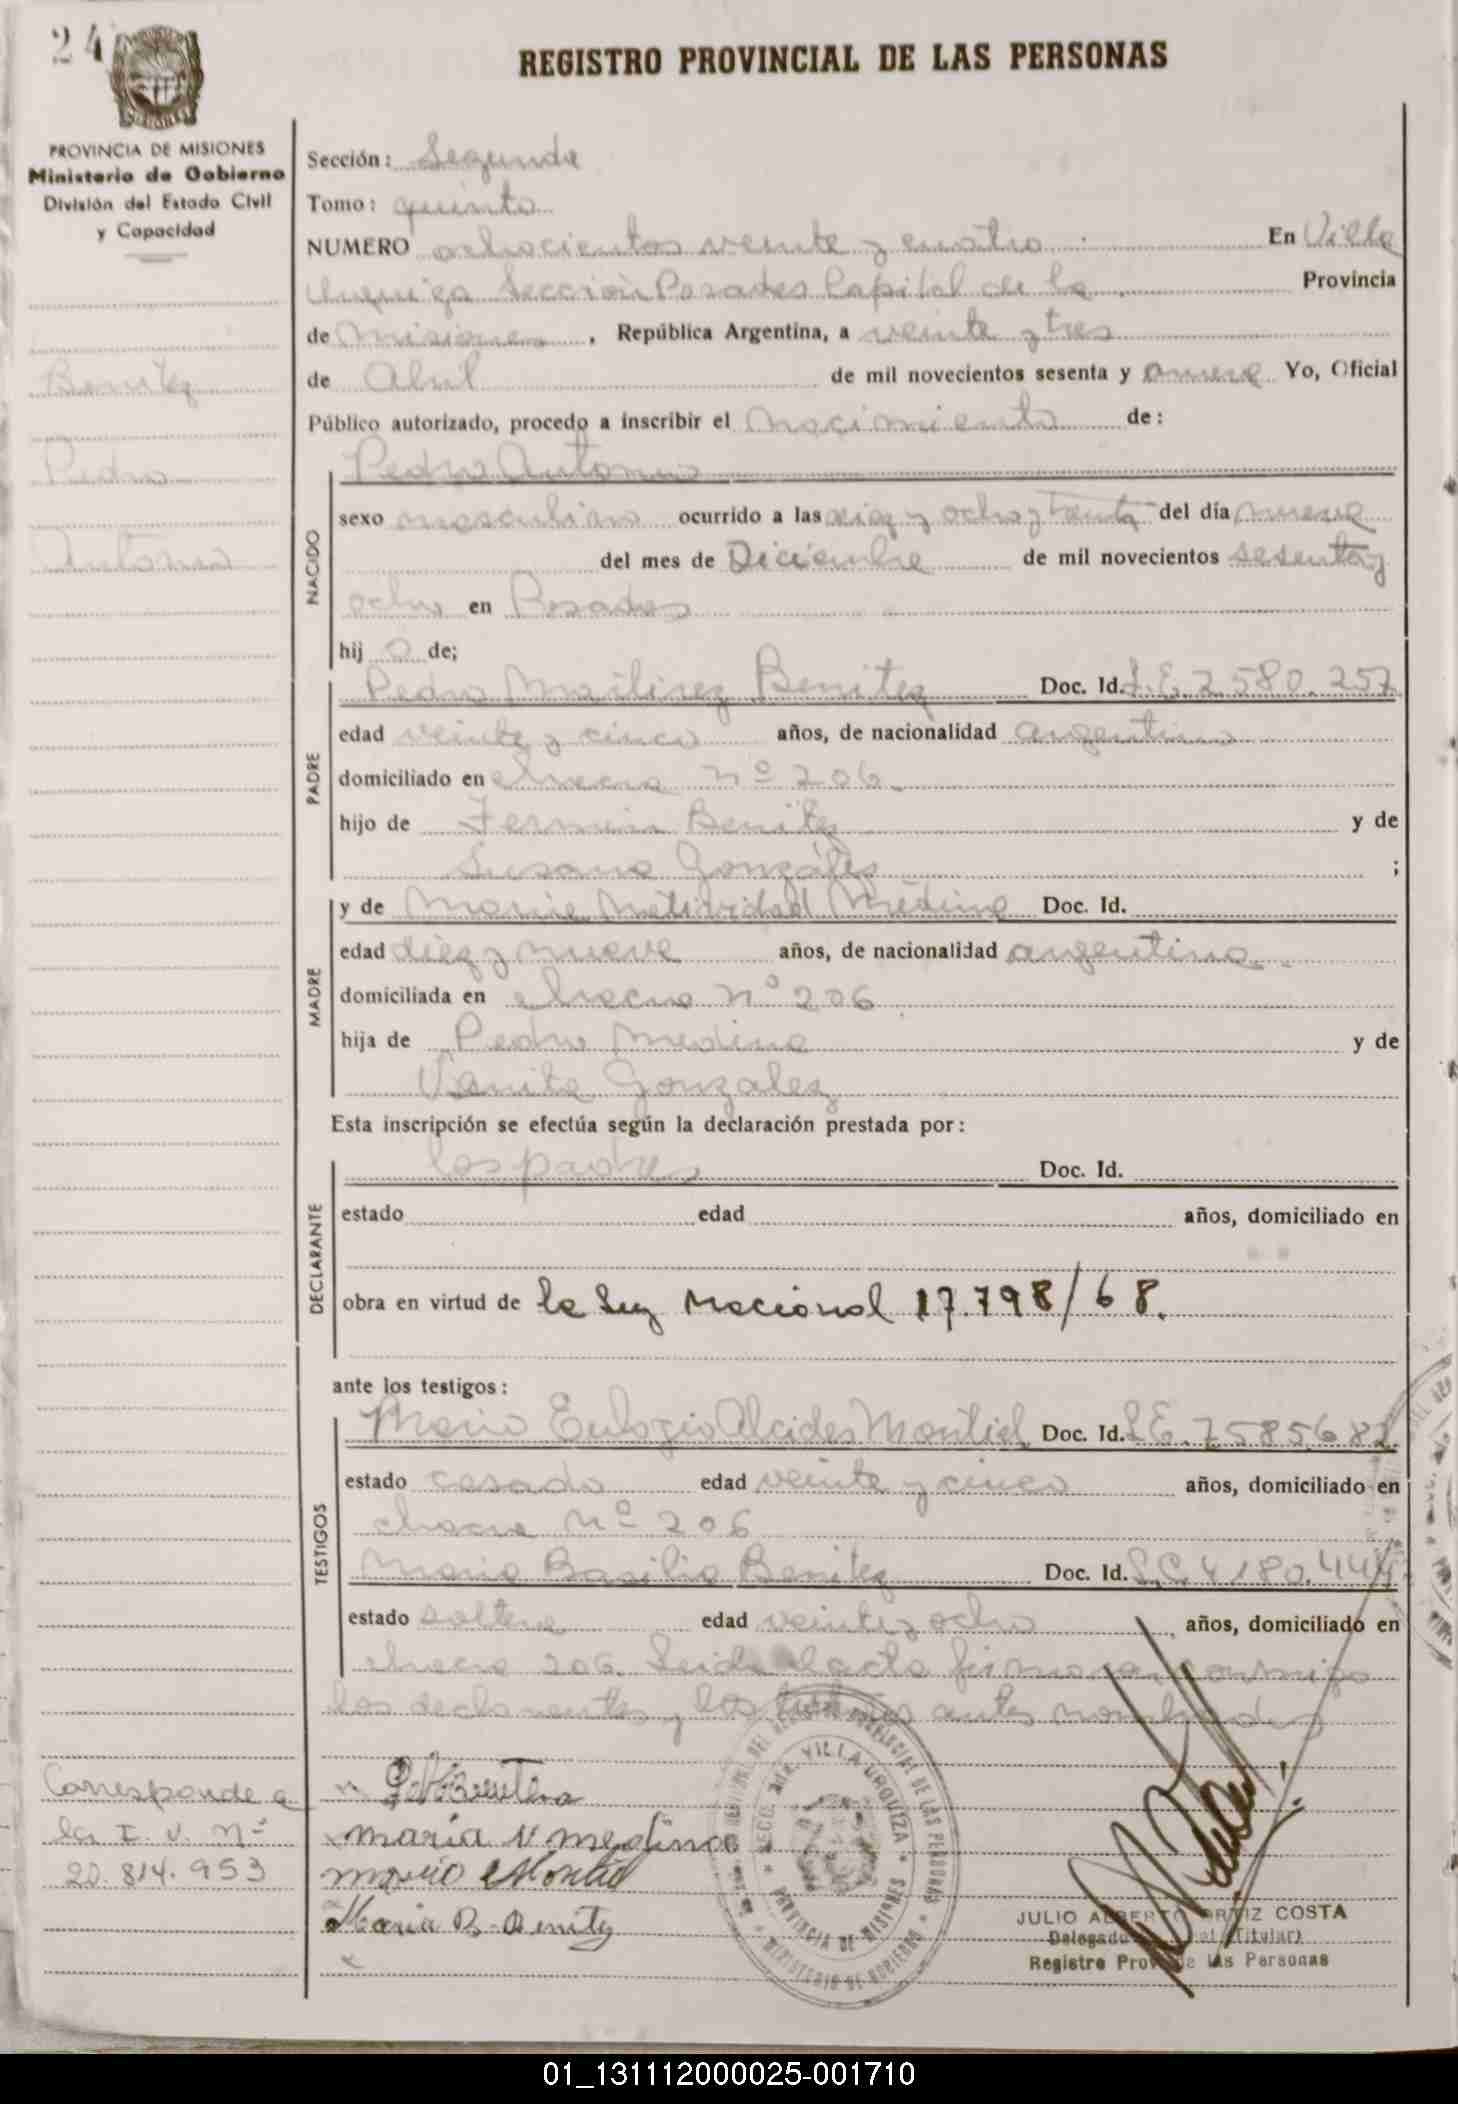 24
REGISTRO PROVINCIAL DE LAS PERSONAS
PROVINCIA DE MISIONES
Ministerio de Gobierno
División del Estado Civil
y Capacidad
Sección: Segunda
Tomo: quinto
NUMERO ochocientos veinte y cuatro En Villa
Urquiza Sección Posadas Capital de la Provincia
de Misiones, República Argentina, a veinte y tres
de Abril de mil novecientos sesenta y nueve Yo, Oficial
Público autorizado, procedo a inscribir el nacimiento de:
Benitez
Pedro
Antonio
NACIDO
Pedro Antonio
sexo masculino ocurrido a las diez y ocho y treinta del día nueve
del mes de Diciembre de mil novecientos sesenta y
ocho en Posadas
hijo de;
PADRE
Pedro Benitez Doc. Id. L.E. 7.580.257
edad veinte y cinco años, de nacionalidad argentino
domiciliado en chacra nº 206
hijo de Fermin Benitez y de
Susana Gonzáles ;
MADRE
y de Maria Natividad Medina Doc. Id.
edad diez y nueve años, de nacionalidad argentina
domiciliada en chacra nº 206
hija de Pedro Medina y de
Gonzalez
Esta inscripción se efectúa según la declaración prestada por:
DECLARANTE
los padres Doc. Id.
estado edad años, domiciliado en
obra en virtud de la Ley Nacional 17.798/68.
ante los testigos:
TESTIGOS
Mario Eulogio Alcides Montiel Doc. Id. L.E. 7585682
estado casado edad veinte y cinco años, domiciliado en
chacra nº 206
Maria Basilia Benitez Doc. Id. L.C. 4180.444
estado soltera edad veinte y ocho años, domiciliado en
chacra 206. Leida el acta firman conmigo
los declarantes y los testigos antes nombrados
Corresponde a
la I. U. Nº
20.814.953
maria N medina
mario Montiel
Maria B. Benitez
SECC. VILLA URQUIZA
PROVINCIA DE MISIONES
MINISTERIO DE GOBIERNO
JULIO ALBERTO ORTIZ COSTA
Delegado (Titular)
Registro Prov. de las Personas
01_131112000025-001710